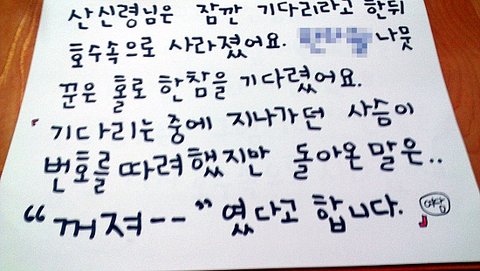 산신령님은 잠깐 기다리라고 한뒤
호수속으로 사라졌어요. 나뭇
꾼은 홀로 한참을 기다렸어요.
기다리는 중에 지나가던 사슴이
번호를 따려했지만 돌아온 말은..
“꺼져--” 였다고 합니다.